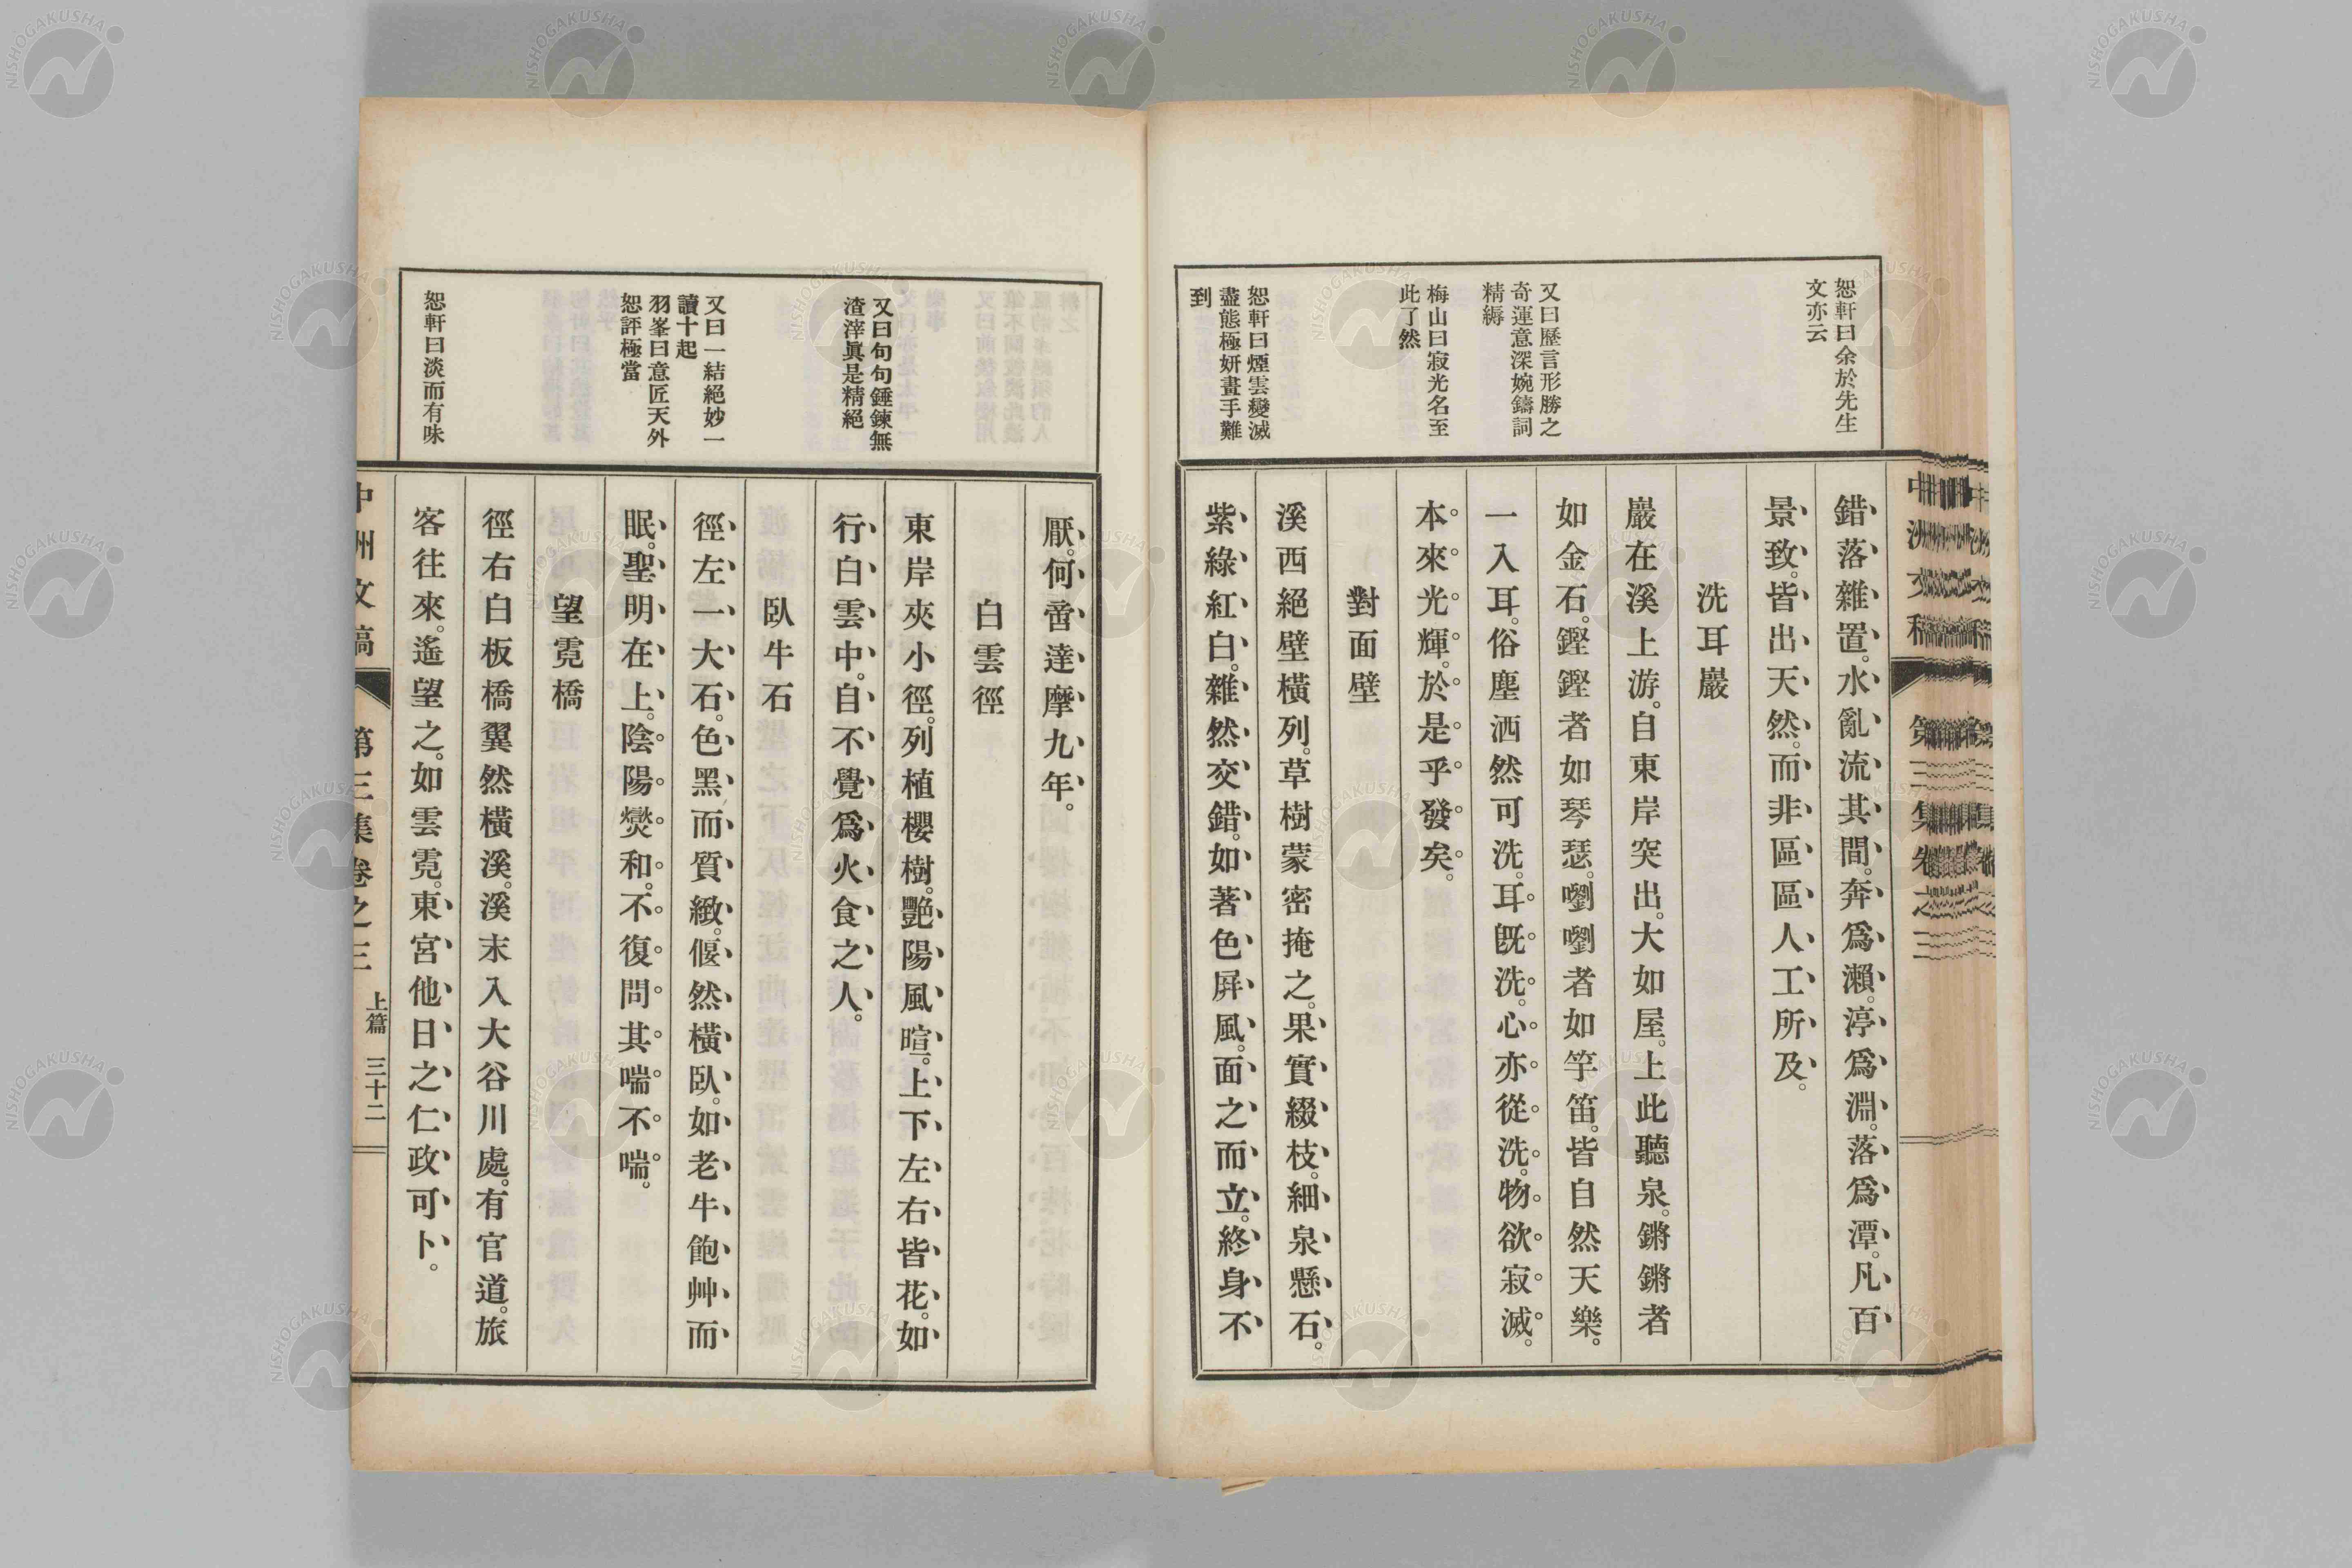 恕軒曰余於先生
文亦云
又曰歷言形勝之
奇運意深婉鑄詞
精縟
梅山曰寂光名至
此了然
恕軒曰煙雲變滅
盡態極妍畫手難
到
錯落雜置。水亂流其間。奔爲瀨。渟爲淵。落爲潭。凡百
景致。皆出天然。而非區區人工所及。
洗耳巖
巖在溪上游。自東岸突出。大如屋。上此聽泉。鏘鏘者
如金石。鏗鏗者如琴瑟。嚠嚠者如竽笛。皆自然天樂。
一入耳。俗塵洒然可洗。耳既洗。心亦從洗。物欲寂滅。
本來光輝。於是乎發矣。
對面壁
溪西絕壁橫列。草樹蒙密掩之。果實綴枝。細泉懸石。
紫綠紅白。雜然交錯。如著色屛風。面之而立。終身不
又曰句句錘鍊無
渣滓眞是精絕
又曰一結絕妙一
讀十起
羽峯曰意匠天外
恕評極當
恕軒曰淡而有味
厭。何啻達摩九年。
白雲徑
東岸夾小徑。列植櫻樹。艷陽風暄。上下左右皆花。如
行白雲中。自不覺爲火食之人。
臥牛石
徑左一大石。色黑而質緻。偃然橫臥。如老牛飽艸而
眠。聖明在上。陰陽爕和。不復問其喘不喘。
望霓橋
徑右白板橋翼然橫溪。溪末入大谷川處。有官道。旅
客往來。遙望之。如雲霓。東宮他日之仁政可卜。
中洲文稿 第三集卷之三 上篇 三十二
NISHOGAKUSHA